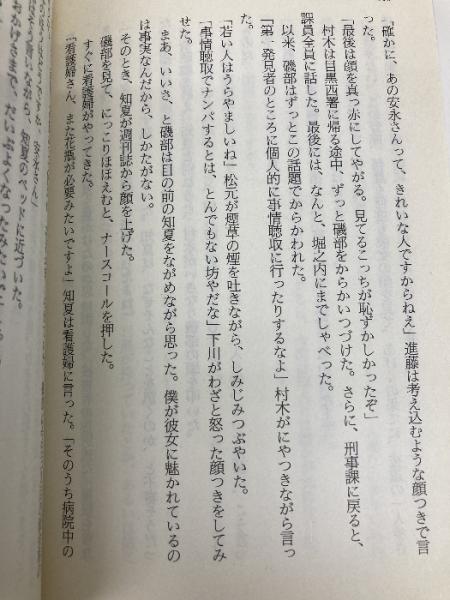 「確かに、あの安永さんって、きれいな人ですからねえ」進藤は考え込むような顔つきで言
った。
「最後は顔を真っ赤にしてやがる。見てるこっちが恥ずかしかったぞ」
村木は目黒西署に帰る途中、ずっと磯部をからかいつづけた。さらに、刑事課に戻ると、
課員全員に話した。最後には、なんと、堀之内にまでしゃべった。
以来、磯部はずっとこの話題でからかわれた。
「第一発見者のところに個人的に事情聴取に行ったりするなよ」村木がにやつきながら言っ
た。
「若い人はうらやましいね」松元が煙草の煙を吐きながら、しみじみつぶやいた。
「事情聴取でナンパするとは、とんでもない坊やだな」下川がわざと怒った顔つきをしてみ
せた。
まあ、いいさ、と磯部は目の前の知夏をながめながら思った。僕が彼女に魅かれているの
は事実なんだから、しかたがない。
そのとき、知夏が週刊誌から顔を上げた。
磯部を見て、にっこりほほえむと、ナースコールを押した。
すぐに看護婦がやってきた。
「看護婦さん、また花瓶が必要みたいですよ」知夏は看護婦に言った。「そのうち病院中の
言いながら、知夏のベッドに近づいた。
おかげさまで、だいぶよくなったみたい